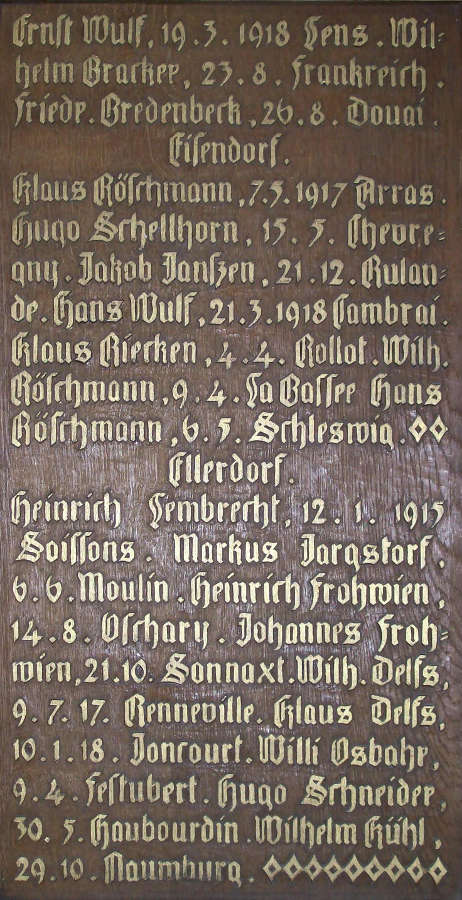 Ernst Wulf, 19.3.1918 Lens. Wil-
helm Bracker, 23.8. Frankreich.
Friedr. Bredenbeck, 26.8. Douai.
Eisendorf.
Klaus Röschmann, 7.5.1917 Arras.
Hugo Schellhorn, 15.5. Chevre-
gny. Jakob Janszen, 21.12. Rulan-
de. Hans Wulf, 21.3.1918 Cambrai.
Klaus Riecken, 4.4. Rollot. Wilh.
Röschmann, 9.4. La Bassee Hans
Röschmann, 6.5. Schleswig.
Ellerdorf.
Heinrich Lembrecht, 12.1. 1915
Soissons. Markus Jargstorf,
6.6. Moulin. Heinrich Frohwien,
14.8. Oschary. Johannes Froh-
wien, 21.10. Sonnaxt. Wilh. Delfs,
9.7.17. Renneville. Klaus Delfs,
10.1.18. Joncourt. Willi Osbahr,
9.4. Festubert. Hugo Schneider,
30.5. Haubourdin Wilhelm Kühl,
29.10. Naumburg.